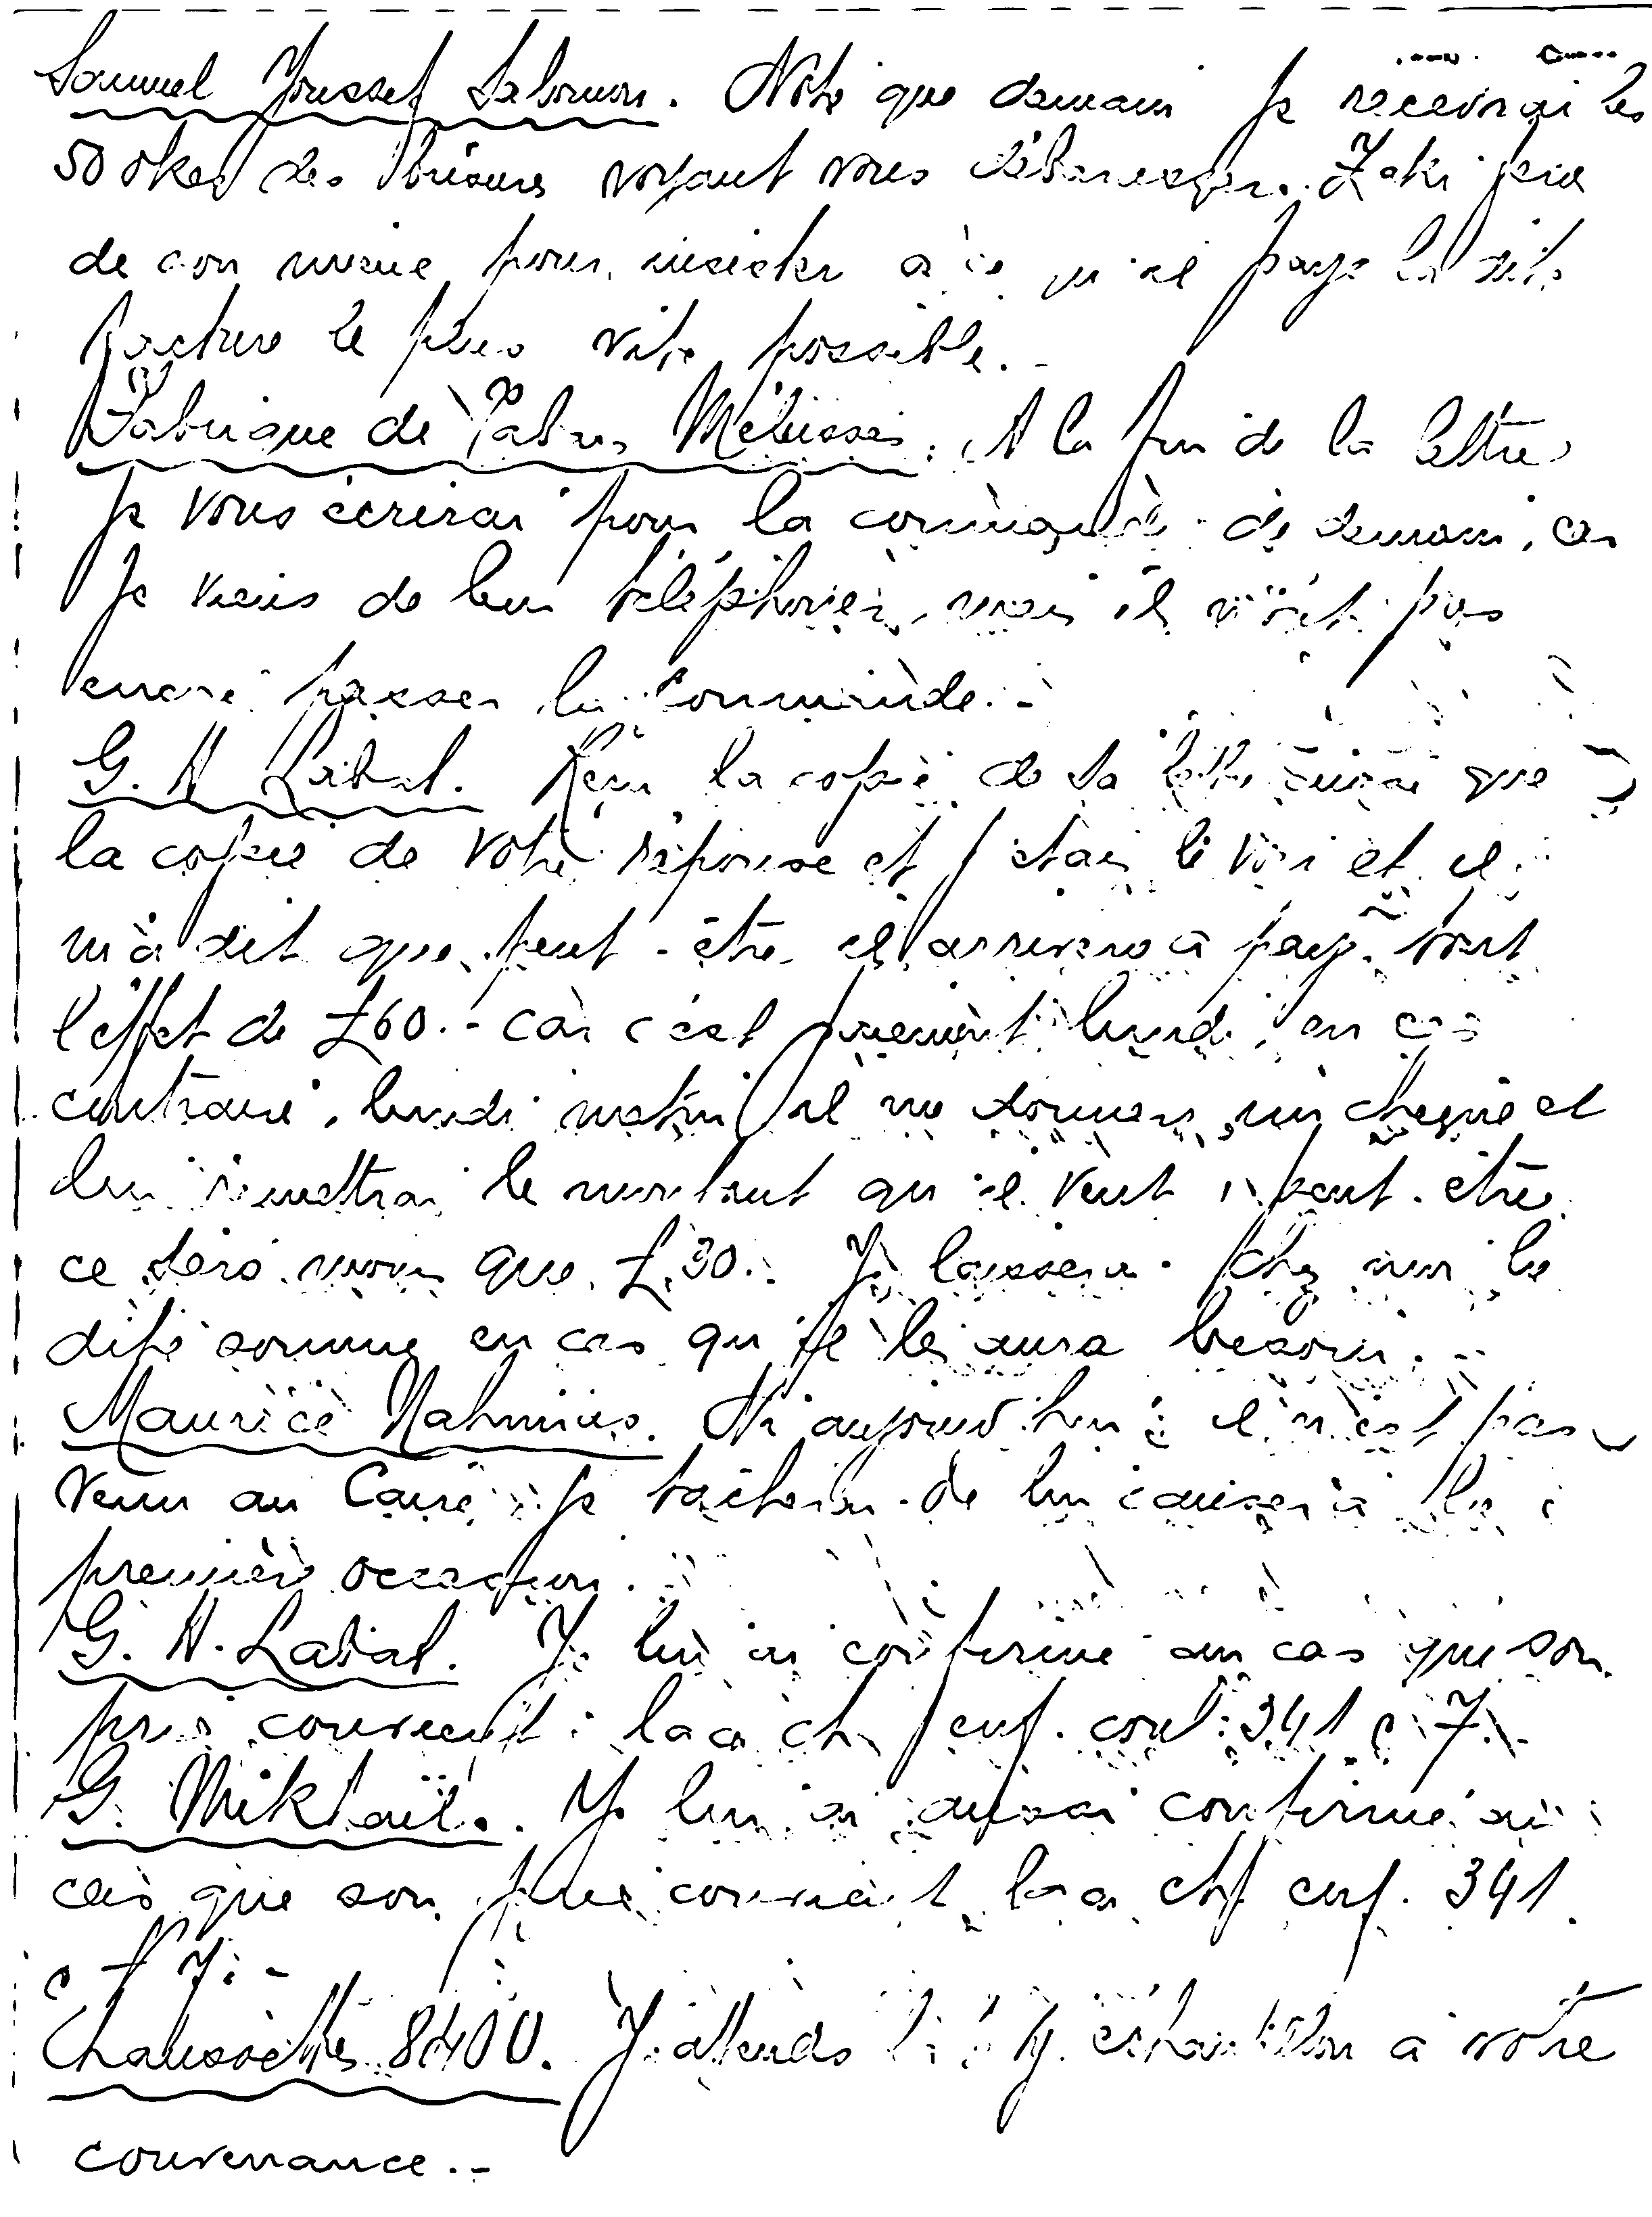 Samuel Youssef Salomon. Noté que demain je recevrai les
50 okes des voyant vous débarrasser. Zaki
de mon mieux pour insister à ce qu'il paye la dite
facture le plus vite possible.-
Fabrique de Tabacs Mélissas. A la fin de la lettre
je vous écrirai pour la commande de demain, car
je viens de leur téléphoner, mais il n'ont pas
encore passer la commande.-
G. H. Labat. Reçu la copie de sa lettre ainsi que
la copie de votre réponse et j'étais le voir et il
m'a dit que peut-être il arrivera à payer tout
l'effet de £60.- car c'est lundi, en cas
contraire, lundi matin il me donnera un cheque et
lui remettrai le montant qu'il veut, peut-être
ce sera moins que £.30.- Je laisserai chez moi la
dite somme en cas qu'il le aura besoin.-
Maurice Nahmias. Ni aujourd'hui il n'est pas
venu au Caire, je tacherai de lui causer à la
première occasion.
G. H. Labat. Je lui ai confirmé au cas que son
prix convient: laca ch. enf. coul. 341 à 7.-
G. Mikhaïl. Je lui ai aussi confirmé au
cas que son prix convient laca chf enf. 341
à f 7.-
Chaussettes 8400. J'attends échantillon à votre
convenance.-